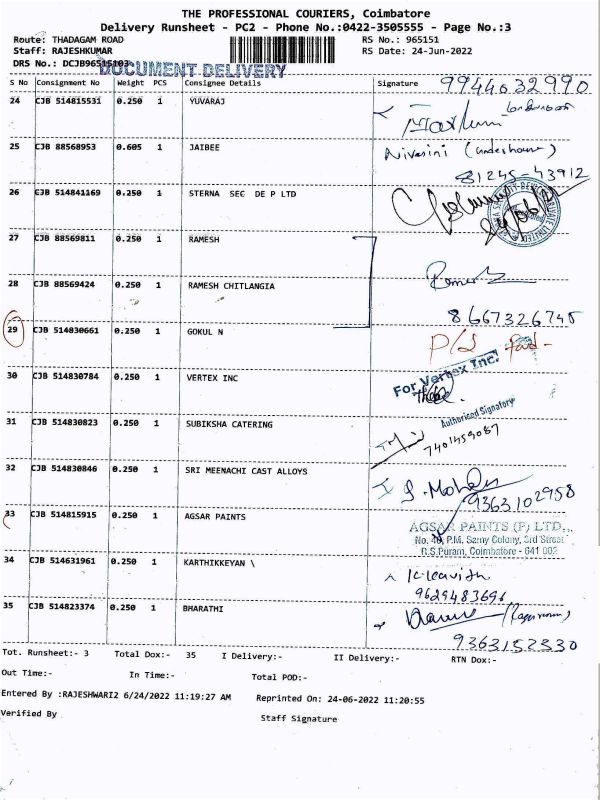 THE PROFESSIONAL COURIERS, Coimbatore
Delivery Runsheet - PC2 - Phone No.:0422-3505555 - Page No.:3
Route: THADAGAM ROAD RS No.: 965151
Staff: RAJESHKUMAR RS Date: 24-Jun-2022
DRS No.: DCJB96515103
DOCUMENT DELIVERY
S No Consignment No Weight PCS Consignee Details Signature 9944632990
24 CJB 514815531 0.250 1 YUVARAJ
25 CJB 88568953 0.605 1 JAIBEE Nivasini (underhouse)
81245-43912
26 CJB 514841169 0.250 1 STERNA SEC DE P LTD
27 CJB 88569811 0.250 1 RAMESH
28 CJB 88569424 0.250 1 RAMESH CHITLANGIA
8667326745
29 CJB 514830661 0.250 1 GOKUL N
30 CJB 514830784 0.250 1 VERTEX INC For Vertex Inc.
Authorised Signatory
31 CJB 514830823 0.250 1 SUBIKSHA CATERING
7401459067
32 CJB 514830846 0.250 1 SRI MEENACHI CAST ALLOYS
9363102958
33 CJB 514815915 0.250 1 AGSAR PAINTS AGSAR PAINTS (P) LTD.,
No. 40, P.M. Samy Colony, 3rd Street
R.S.Puram, Coimbatore - 641 002
34 CJB 514631961 0.250 1 KARTHIKKEYAN \
9629483696
35 CJB 514823374 0.250 1 BHARATHI
9363152330
Tot. Runsheet:- 3 Total Dox:- 35 I Delivery:- II Delivery:- RTN Dox:-
Out Time:- In Time:- Total POD:-
Entered By :RAJESHWARI2 6/24/2022 11:19:27 AM Reprinted On: 24-06-2022 11:20:55
Verified By Staff Signature